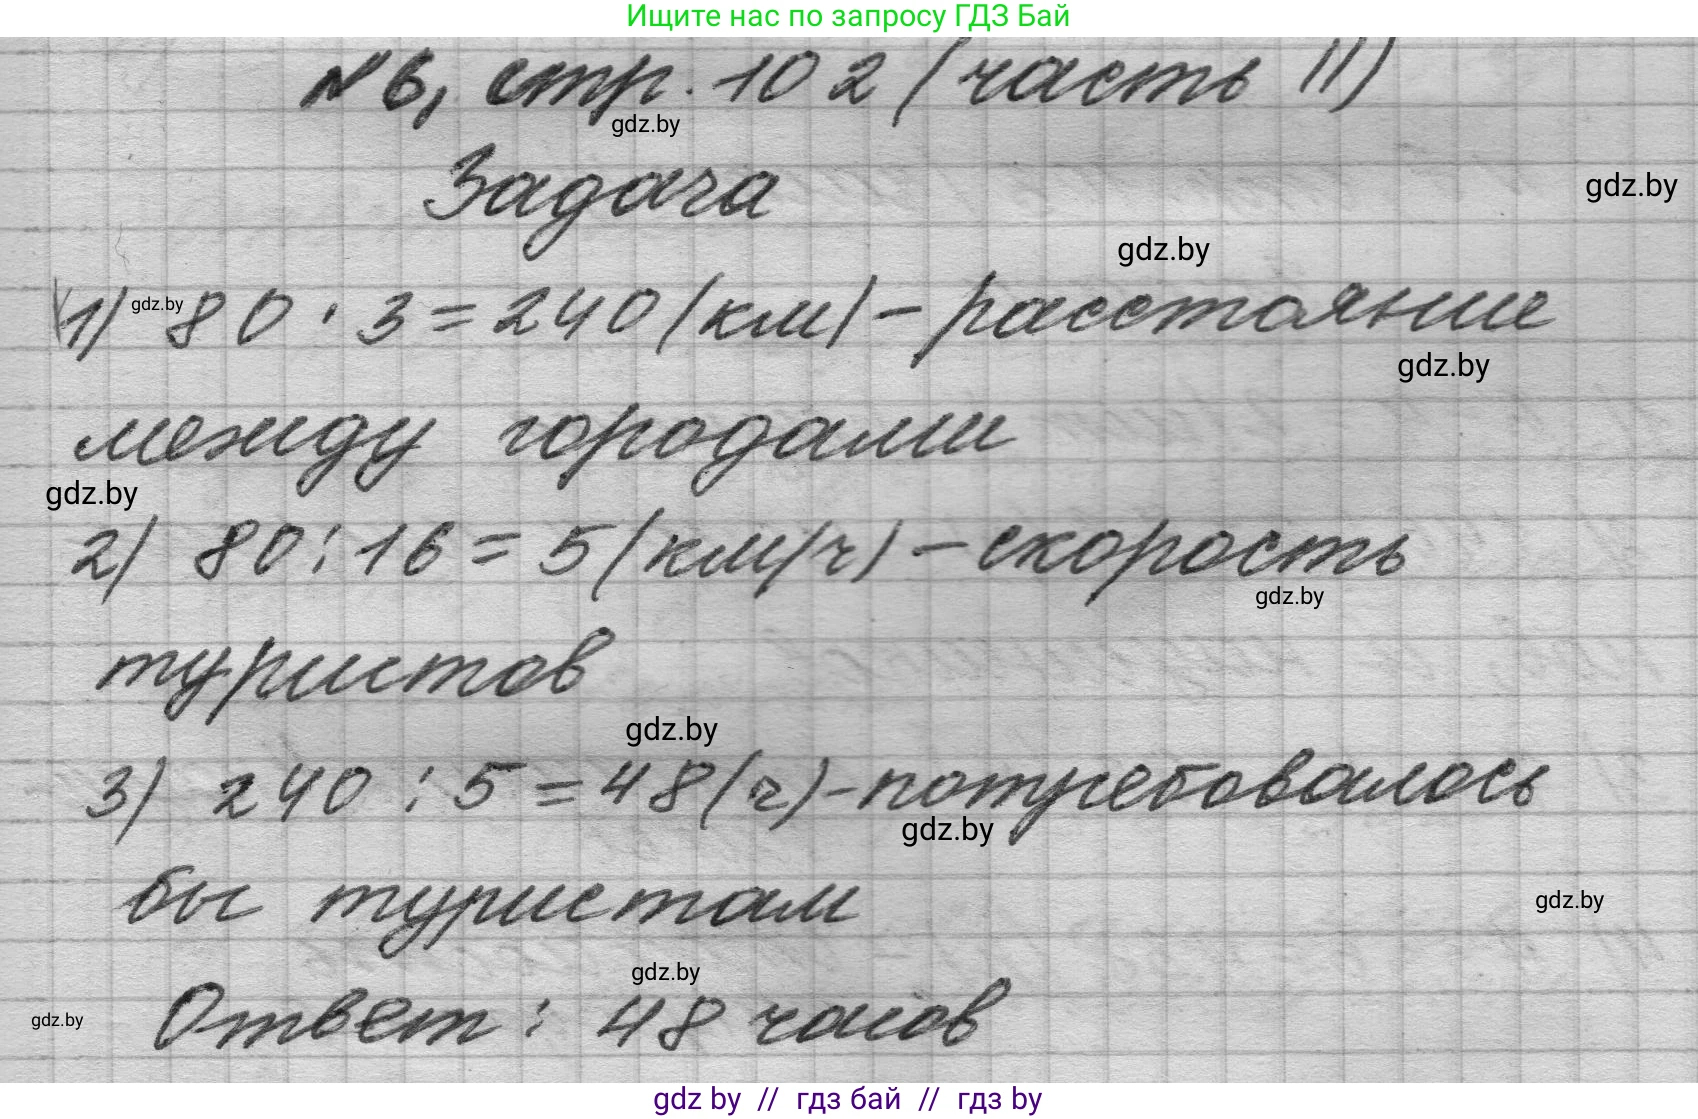 Ищите нас по запросу ГДЗ Бай
№6, стр. 102 (часть II)
gdz.by
Задача
gdz.by
gdz.by
1) gdz.by 80 · 3 = 240 (км) – расстояние
gdz.by
между городами
gdz.by
2) 80 : 16 = 5 (км/ч) – скорость
gdz.by
туристов
gdz.by
3) 240 : 5 = 48 (ч) – потребовалось
gdz.by
бы туристам
gdz.by
gdz.by
Ответ: 48 часов
gdz.by
gdz by // гдз бай // гдз by